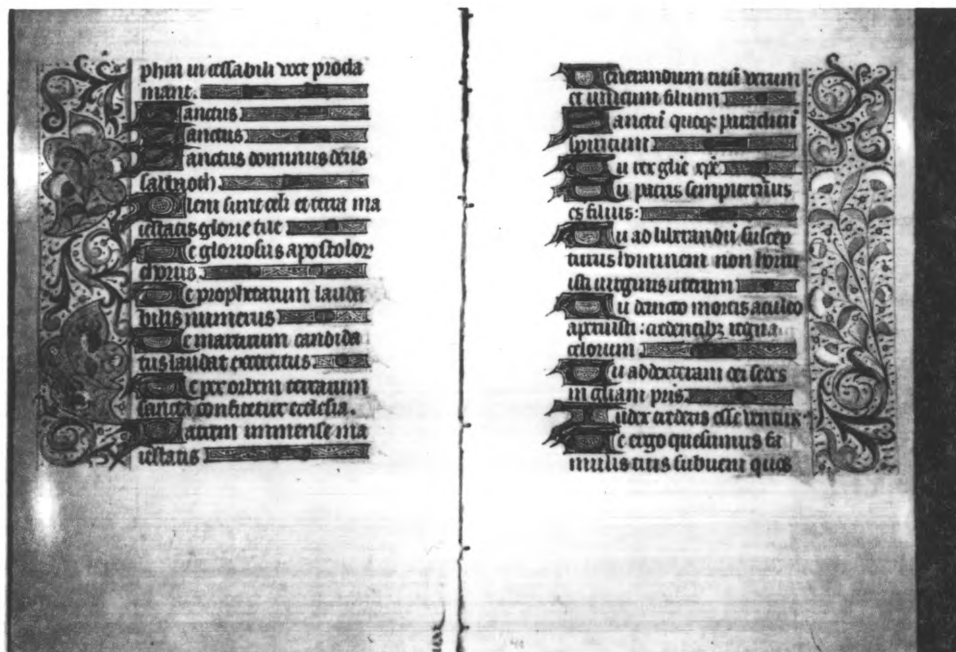 phin incessabili voce procla
mant.
Sanctus
Sanctus
Sanctus dominus deus
sabaoth
Pleni sunt celi et terra ma
iestatis glorie tue
Te gloriosus apostolor
chorus
Te prophetarum lauda
bilis numerus
Te martirum candida
tus laudat exercitus
Te per orbem terrarum
sancta confitetur ecclesia.
Patrem immense ma
iestatis
Venerandum tuū verum
et unicum filium
Sanctū quoqꝫ paraclitū
spiritum
Tu rex glie xpe
Tu patris sempiternus
es filius:
Tu ad liberandū suscep
turus hominem non horru
isti virginis uterum
Tu devicto mortis aculeo
aperuisti: credentibꝫ regna
celorum
Tu ad dexteram dei sedes
in gliam pris
Iudex crederis esse ventur
Te ergo quesumus fa
mulis tuis subueni quos